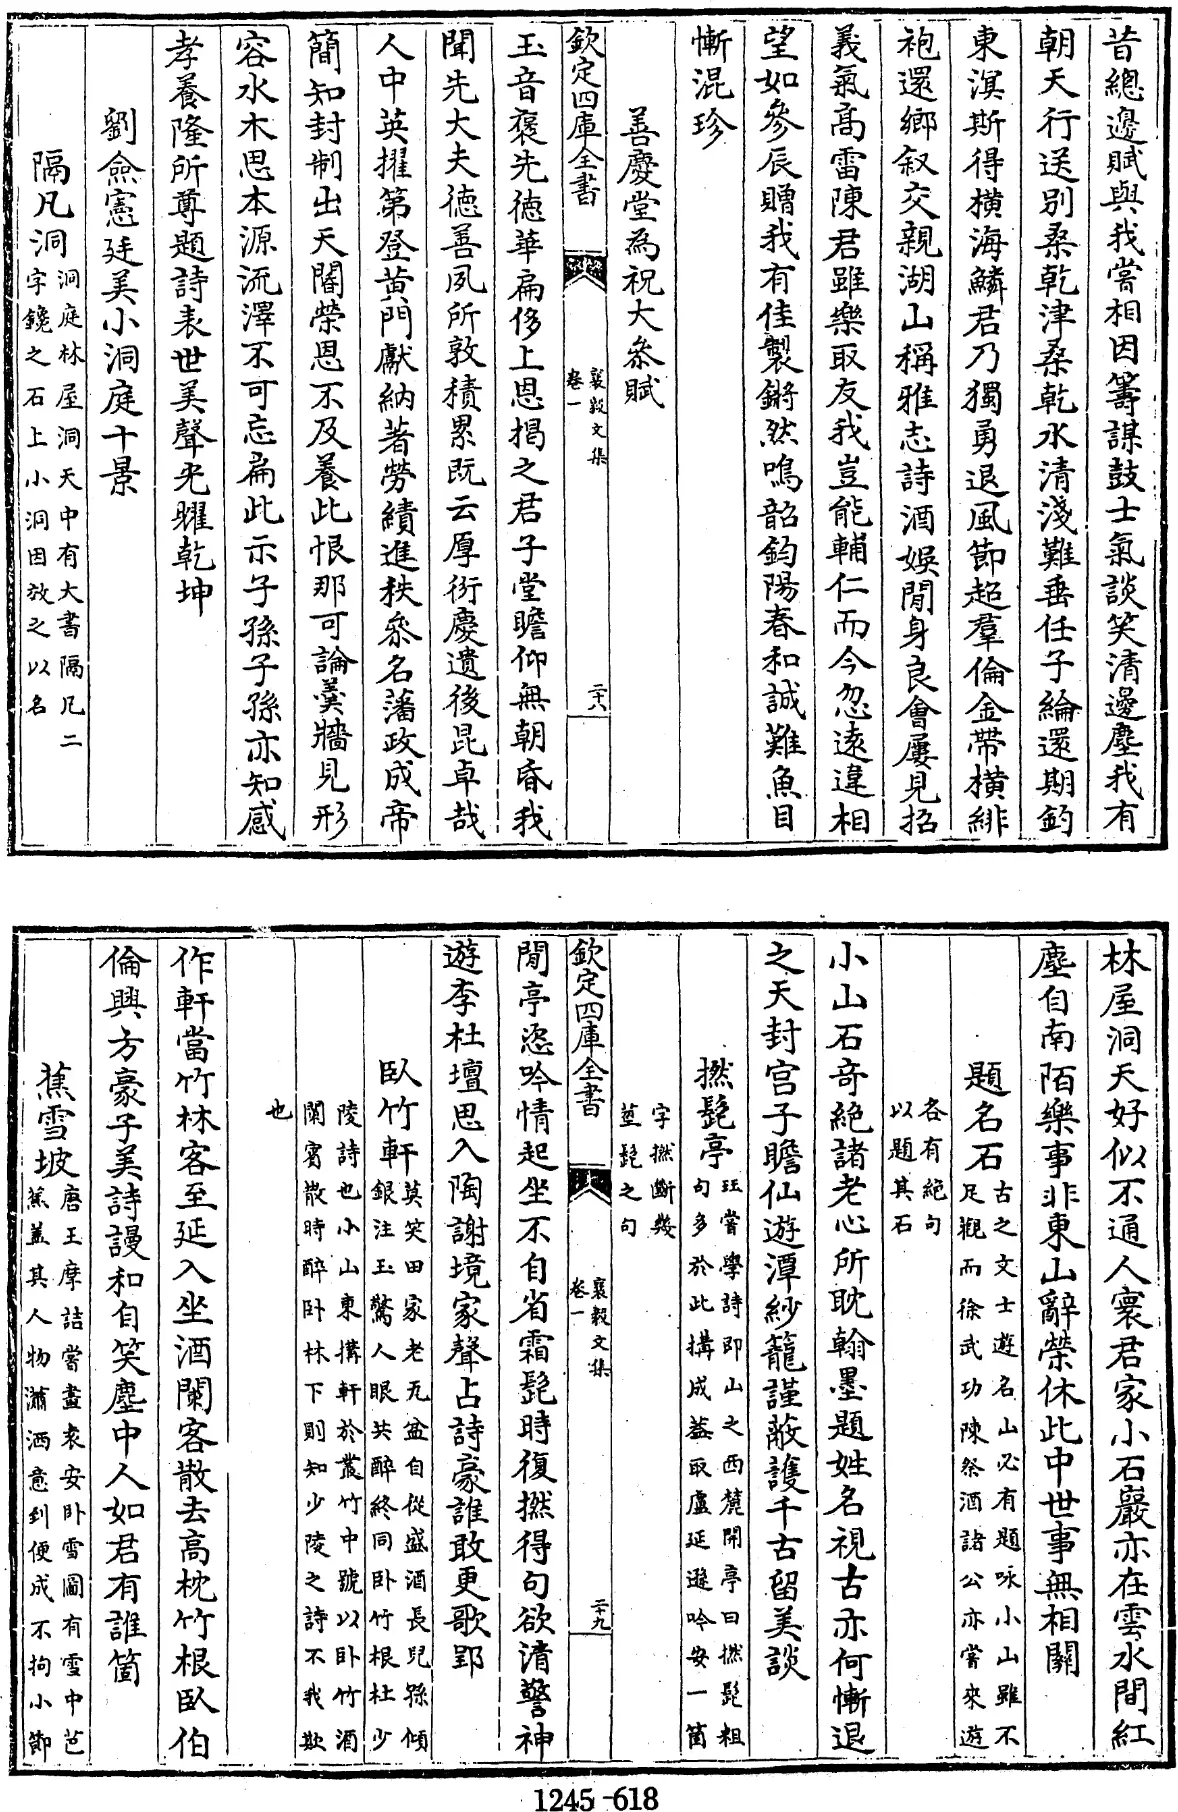 昔總邊賦與我嘗相因籌謀鼓士氣談笑清邊塵我有
朝天行送别桑乾津桑乾水清淺難垂任子綸還期釣
東溟斯得横海鱗君乃獨勇退風節超羣倫金帶横緋
袍還鄉叙交親湖山稱雅志詩酒娯閒身良會屢見招
義氣髙雷陳君雖樂取友我豈能輔仁而今忽逺違相
望如參辰贈我有佳製鏘然鳴韶鈞陽春和誠難魚目
慚混珍
善慶堂為祝大參賦
欽定四庫全書
襄毅文集
卷一
二十八
玉音褒先徳華扁侈上恩揭之君子堂瞻仰無朝昏我
聞先大夫徳善夙所敦積累既云厚衍慶遺後昆卓哉
人中英擢第登黄門獻納著勞績進秩叅名藩政成帝
簡知封制出天閽榮恩不及養此恨那可論羮牆見形
容水木思本源流澤不可忘扁此示子孫子孫亦知感
孝養隆所尊題詩表世美聲光曜乾坤
劉僉憲廷美小洞庭十景
隔凡洞洞庭林屋洞天中有大書隔凡二
字鐫之石上小洞因效之以名
林屋洞天好似不通人寰君家小石巖亦在雲水間紅
塵自南陌樂事非東山辭榮休此中世事無相闗
題名石古之文士遊名山必有題咏小山雖不
足觀而徐武功陳祭酒諸公亦嘗來遊
各有絶句
以題其石
小山石竒絶諸老心所耽翰墨題姓名視古亦何慚退
之天封宫子瞻仙遊潭紗籠謹蔽護千古留美談
撚髭亭珏嘗學詩即山之西麓開亭曰撚髭粗
句多於此搆成葢取盧延遜吟安一箇
字撚斷幾
莖髭之句
欽定四庫全書
襄毅文集
卷一
二十九
閒亭恣吟情起坐不自省霜髭時復撚得句欲清警神
遊李杜壇思入陶謝境家聲占詩豪誰敢更歌郢
臥竹軒莫笑田家老瓦盆自從盛酒長兒孫傾
銀注玉驚人眼共醉終同卧竹根杜少
陵詩也小山東搆軒於叢竹中號以卧竹酒
闌賓散時醉卧林下則知少陵之詩不我欺
也
作軒當竹林客至延入坐酒闌客散去高枕竹根臥伯
倫興方豪子美詩謾和自笑塵中人如君有誰箇
蕉雪坡唐王摩詰嘗畫袁安卧雪圖有雪中芭
蕉葢其人物瀟洒意到便成不拘小節
1245-618